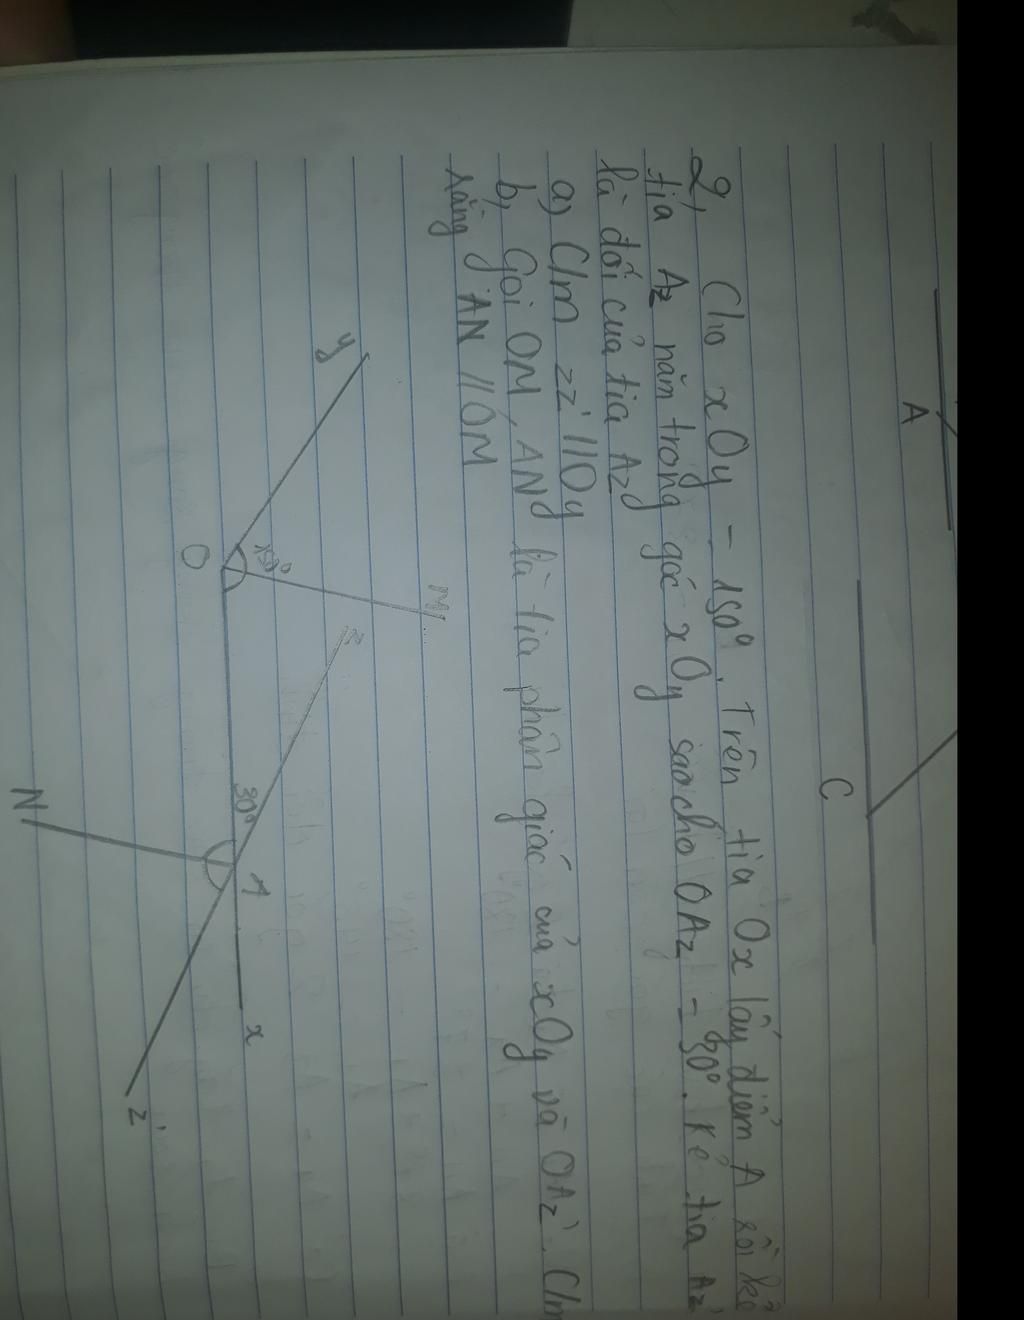 A
C
2, Cho xOy = 150°. Trên tia Ox lấy điểm A rồi kẻ
tia Az nằm trong góc xOy sao cho OAz = 30°. Kẻ tia Az'
là đối của tia Az
a) C/m zz' // Oy
b, Gọi OM, AN là tia phân giác của xOy và OAz'. C/m
rằng AN // OM
M
y
z
150°
O
30°
A
x
N
z'